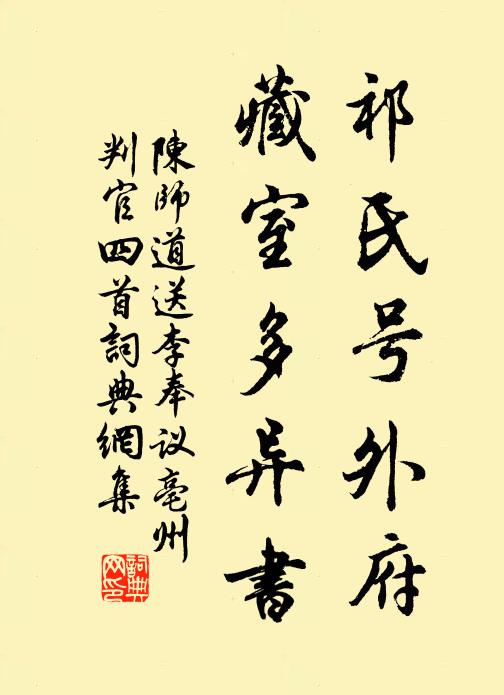 祁氏号外府
藏室多异書
陳師道送李奉议亳州
判官四首詞典網集
詞典
网印